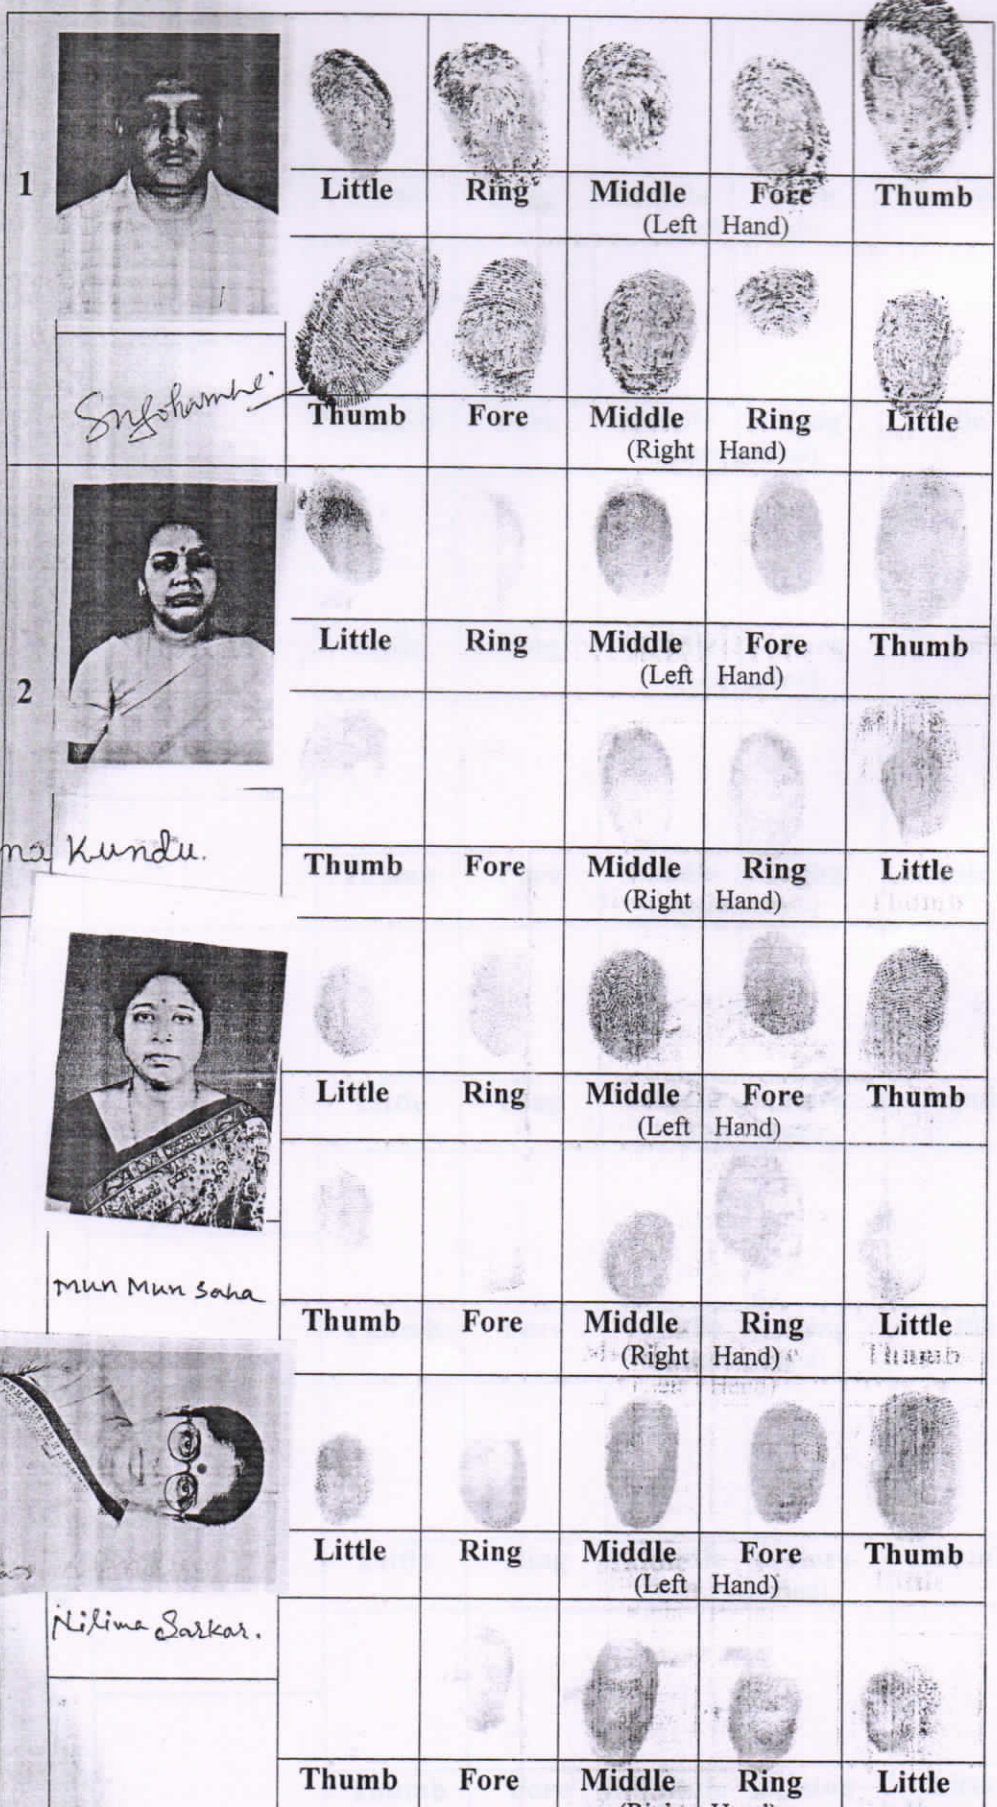 Little Ring Middle Fore Thumb
(Left Hand)
1
Thumb Fore Middle Ring Little
(Right Hand)
Little Ring Middle Fore Thumb
(Left Hand)
2
na Kundu.
Thumb Fore Middle Ring Little
(Right Hand)
Little Ring Middle Fore Thumb
(Left Hand)
Mun Mun Saha
Thumb Fore Middle Ring Little
(Right Hand)
Thumb
Little Ring Middle Fore Thumb
(Left Hand)
Nilima Sarkar.
Thumb Fore Middle Ring Little
(Right Hand)